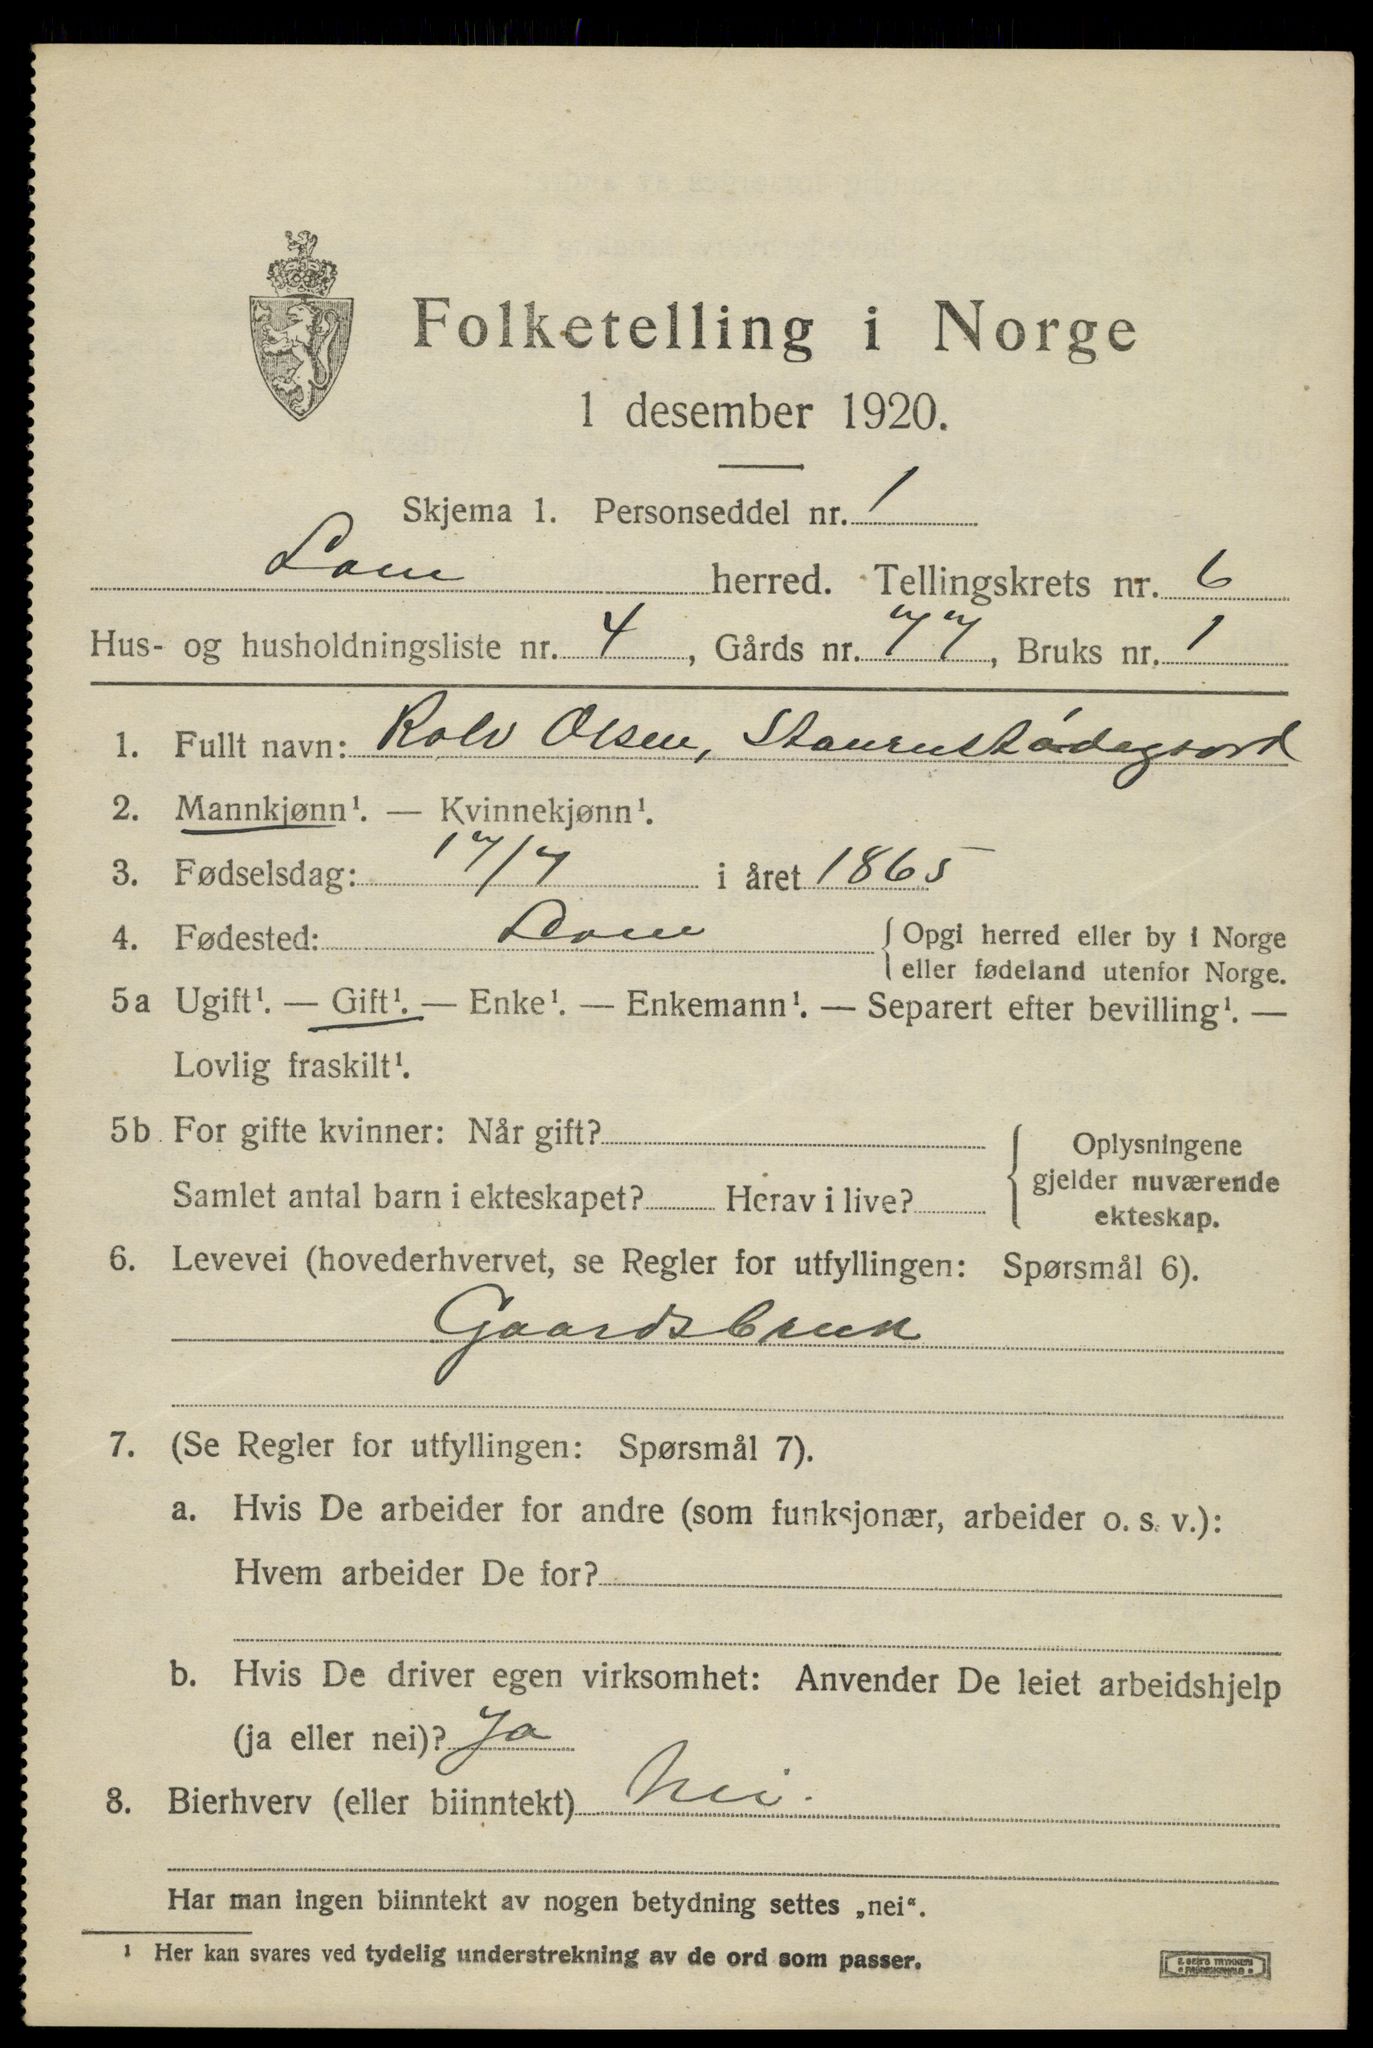 Folketelling i Norge
1 desember 1920.
Skjema 1. Personseddel nr. 1
Lom herred. Tellingskrets nr. 6
Hus- og husholdningsliste nr. 4, Gårds nr. 77, Bruks nr. 1
1. Fullt navn: Rolv Olsen,
2. Mannkjønn¹. — Kvinnekjønn¹.
3. Fødselsdag: 17/7 i året 1865
4. Fødested: Lom { Opgi herred eller by i Norge
eller fødeland utenfor Norge.
5a Ugift¹. — Gift¹. — Enke¹. — Enkemann¹. — Separert efter bevilling¹. —
Lovlig fraskilt¹.
5b For gifte kvinner: Når gift?
Samlet antal barn i ekteskapet? Herav i live?
{ Oplysningene
gjelder nuværende
ekteskap.
6. Levevei (hovederhvervet, se Regler for utfyllingen: Spørsmål 6).
Gaardsbruk
7. (Se Regler for utfyllingen: Spørsmål 7).
a. Hvis De arbeider for andre (som funksjonær, arbeider o. s. v.):
Hvem arbeider De for?
b. Hvis De driver egen virksomhet: Anvender De leiet arbeidshjelp
(ja eller nei)? Ja
8. Bierhverv (eller biinntekt) Nei.
Har man ingen biinntekt av nogen betydning settes „nei“.
¹ Her kan svares ved tydelig understrekning av de ord som passer.